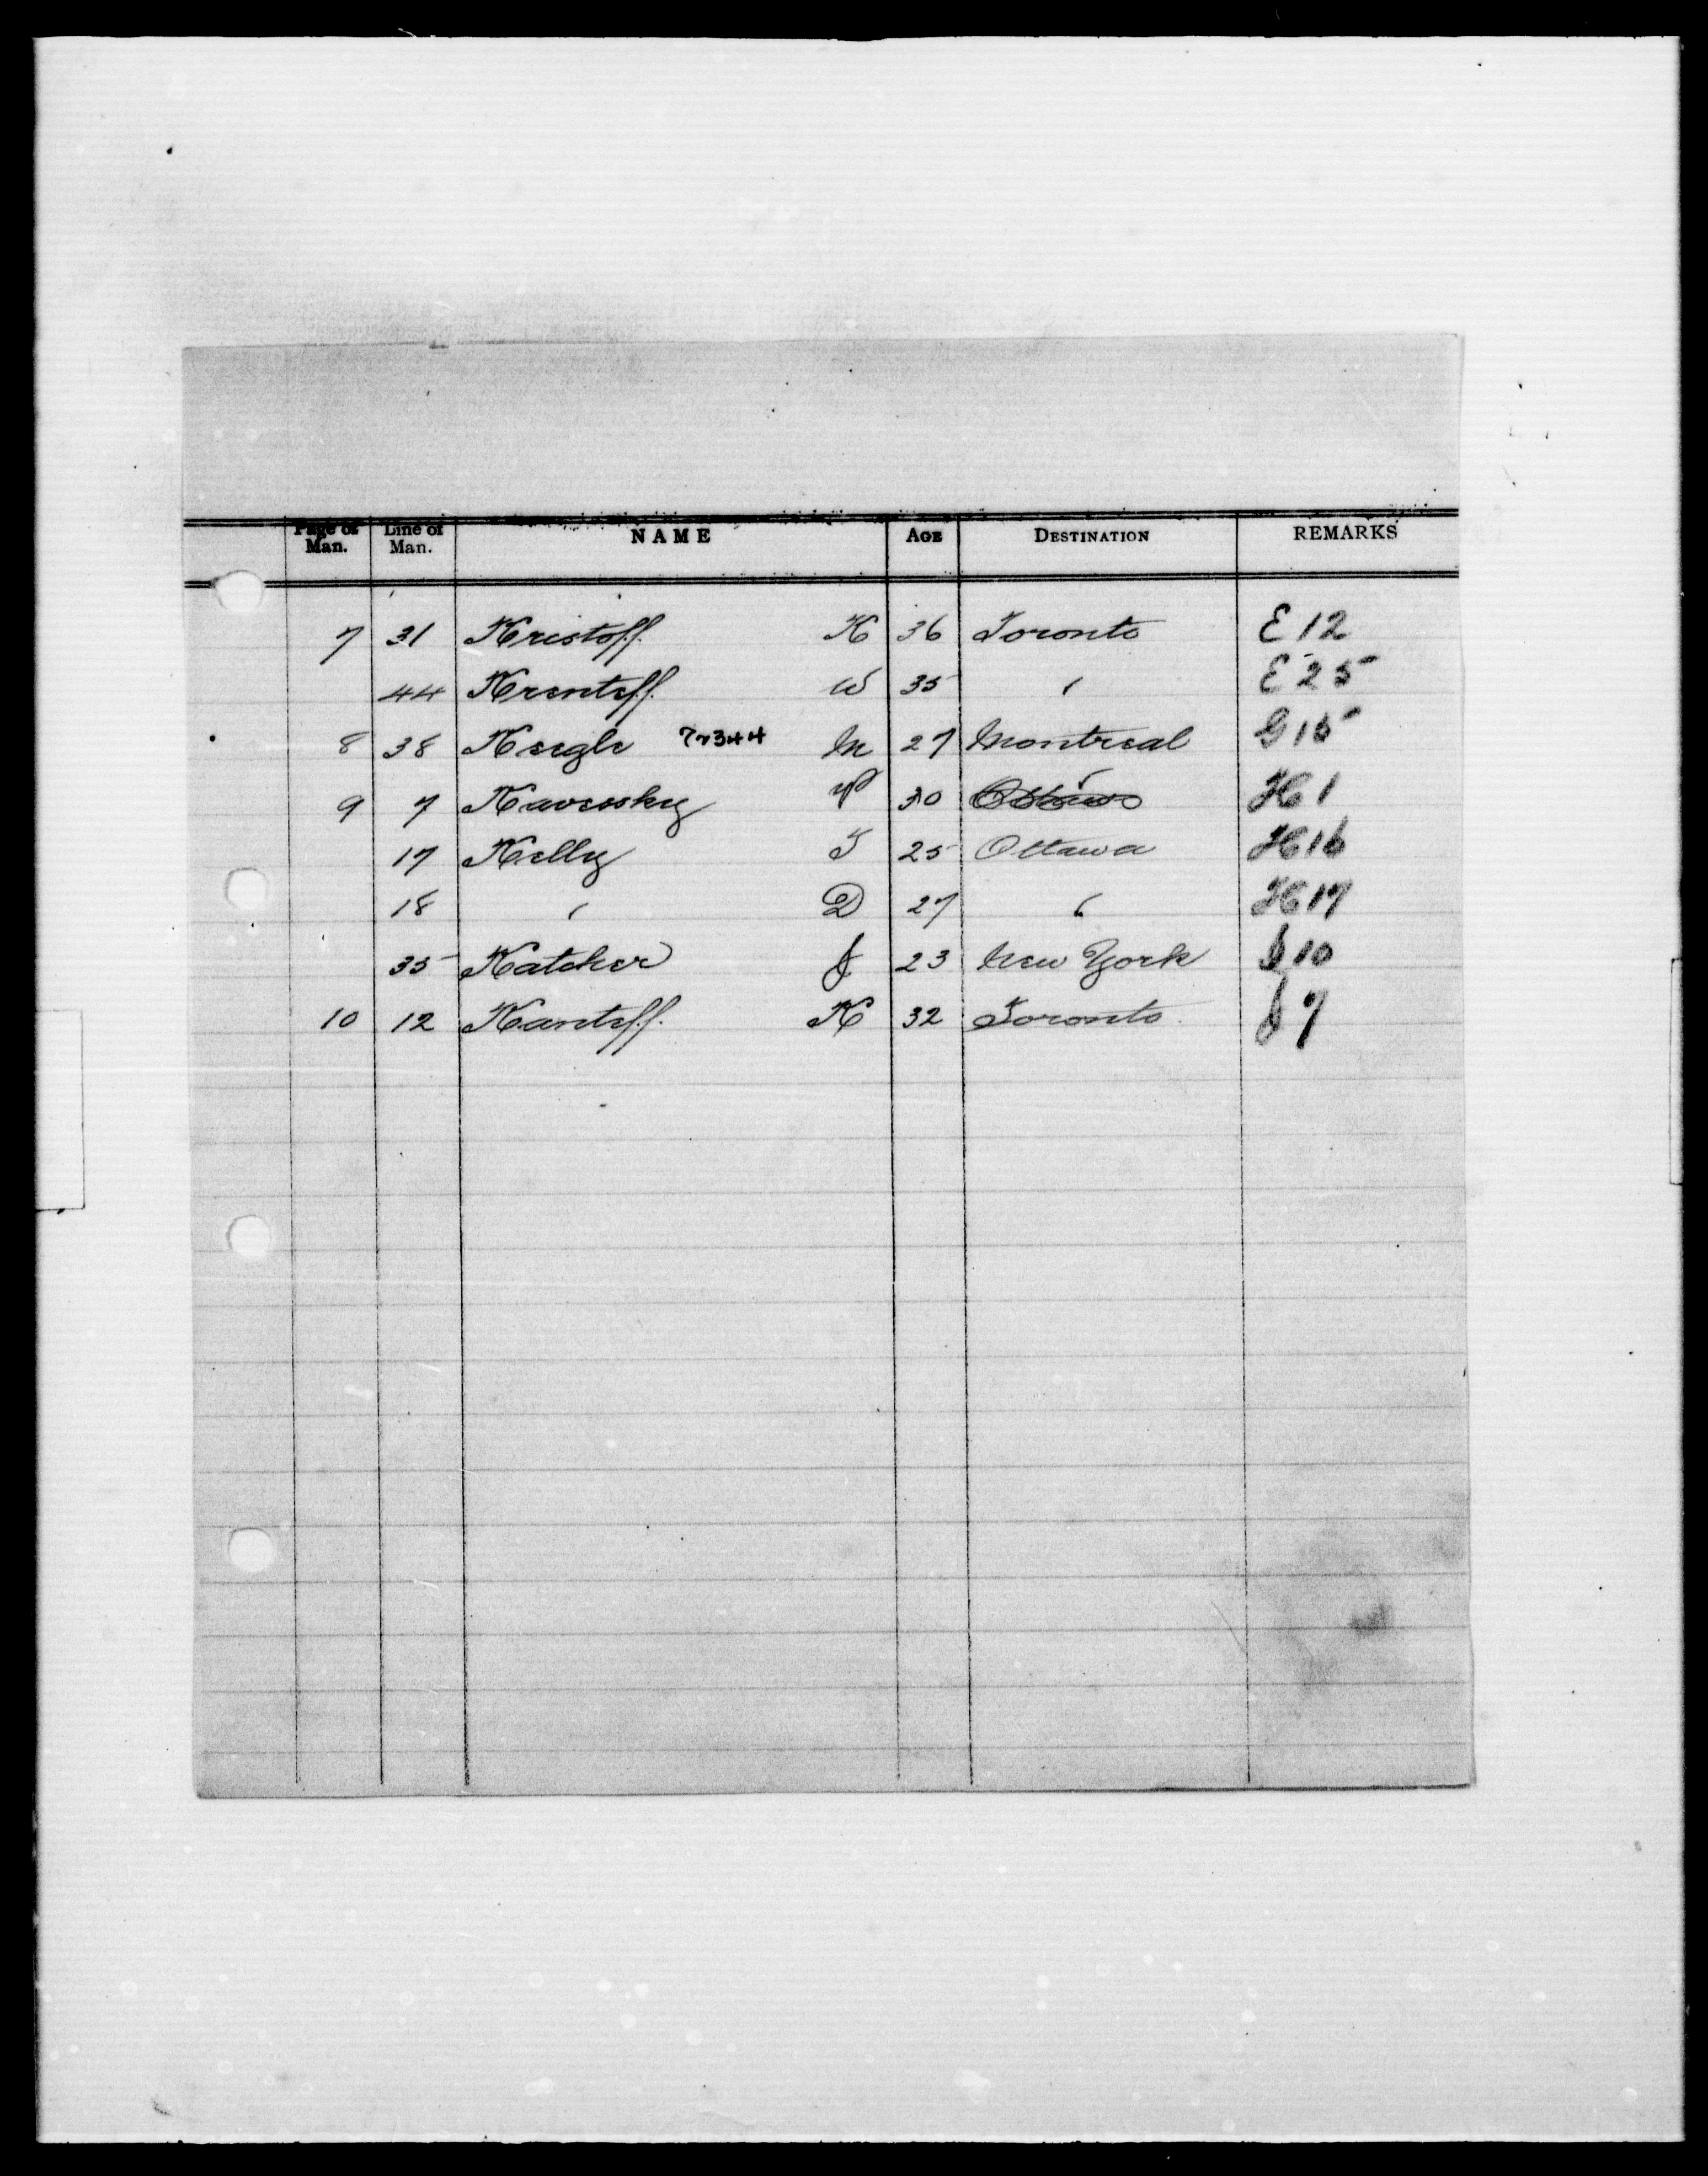 Page of Man. Line of Man. NAME AGE DESTINATION REMARKS
7 31 Kristoff K 36 Toronto E 12
44 Krenteff W 35 " E 25
8 38 Keegle 7v344 M 27 Montreal G 15
9 7 Kavessky P 30 " H 1
17 Kelly T 25 Ottawa H 16
18 " D 27 " H 17
35 Katcher J 23 New York 10
10 12 Kanteff K 32 Toronto J 7